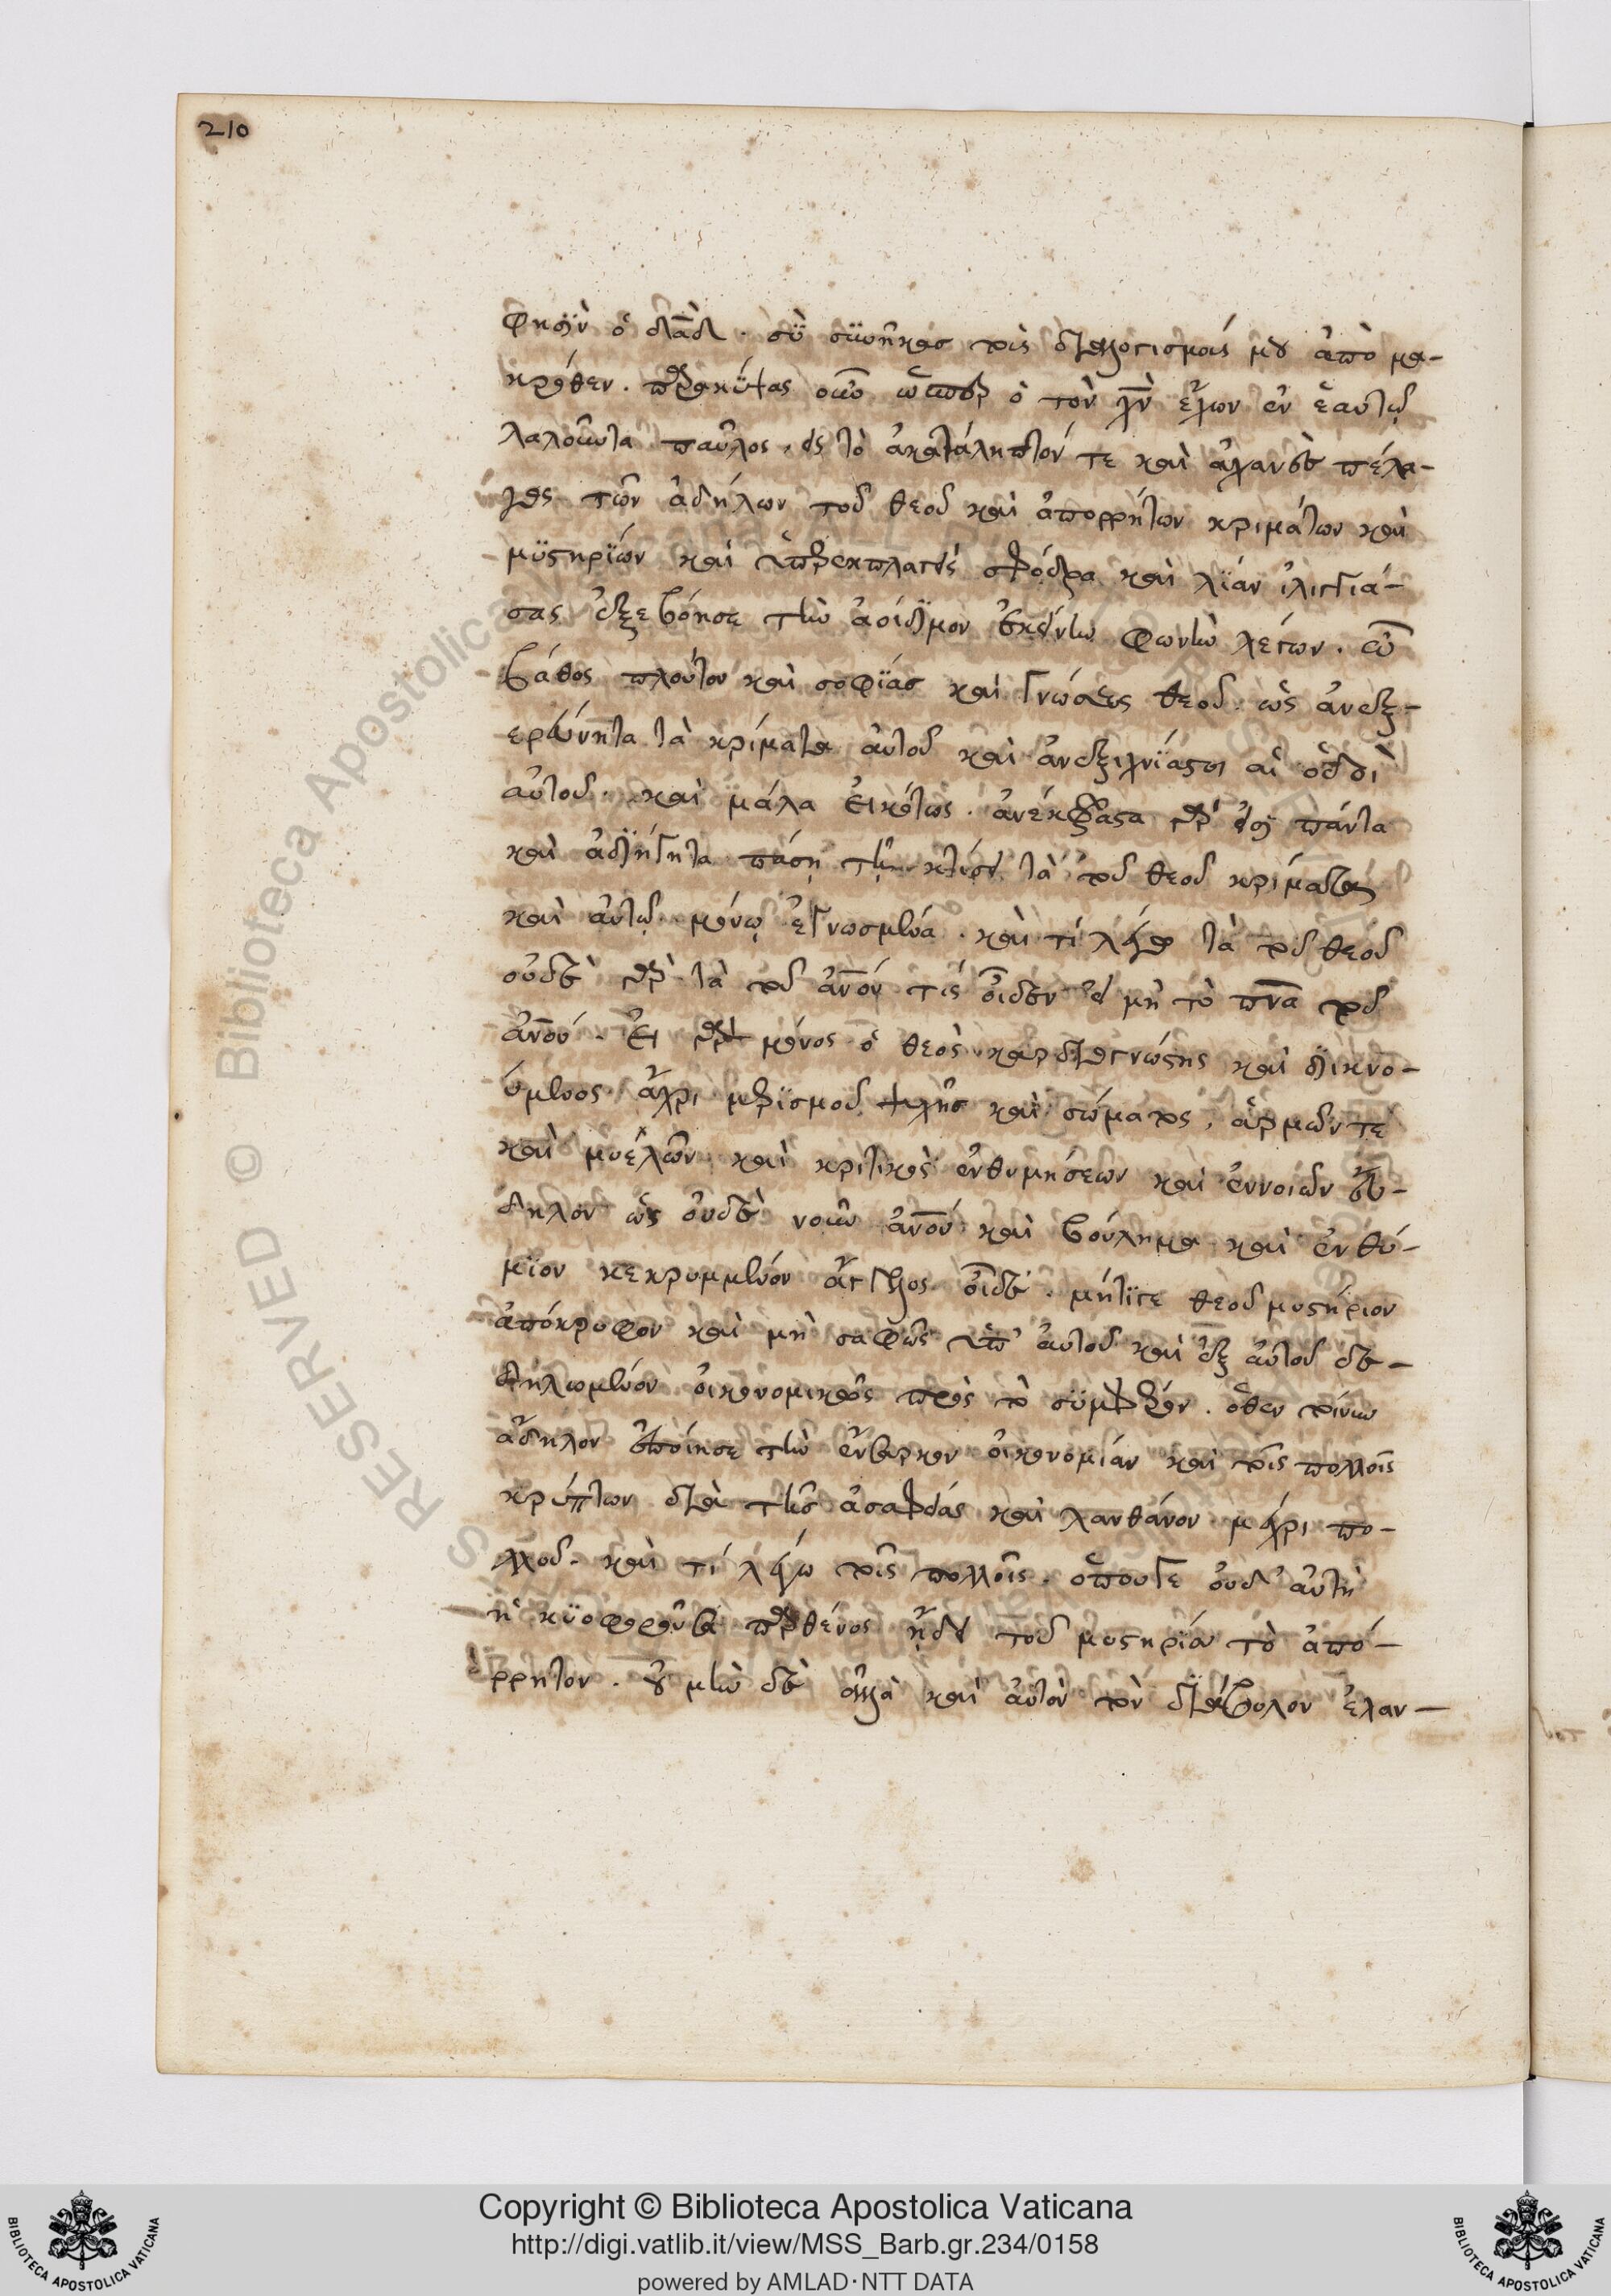 210
φησὶν ὁ δᾱδ. σὺ συνῆκας τοὺς διαλογισμούς μου ἀπὸ μα-
κρόθεν. παρακύψας οὖν ὥσπερ ὁ τὸν χ̄ν ἔχων ἐν ἑαυτῷ
λαλοῦντα παῦλος, εἰς τὸ ἀκατάληπτόν τε καὶ ἀχανὲς πέλα-
γος τῶν ἀδήλων τοῦ θεοῦ καὶ ἀπορρήτων κριμάτων καὶ
μυστηρίων καὶ ὑπερεκπλαγεὶς σφόδρα καὶ λίαν ἰλιγγιά-
σας ἐξεβόησε τὴν ἀοίδιμον ἐκείνην φωνὴν λέγων. ὦ
βάθος πλούτου καὶ σοφίας καὶ γνώσεως θεοῦ. ὡς ἀνεξ-
ερεύνητα τὰ κρίματα αὐτοῦ καὶ ἀνεξιχνίαστοι αἱ ὁδοὶ
αὐτοῦ. καὶ μάλα εἰκότως. ἀνέκφραστα γάρ εἰσι πάντα
καὶ ἀδιήγητα πάσῃ τῇ κτίσει τὰ τοῦ θεοῦ κρίματα
καὶ αὐτῷ μόνῳ ἐγνωσμένα. καὶ τί λέγω τὰ τοῦ θεοῦ
οὐδὲ γὰρ τὰ τοῦ ἀν̄ου τίς οἶδεν εἰ μὴ τὸ πν̄α τοῦ
ἀν̄ου. Εἰ γὰρ μόνος ὁ θεὸς καρδιογνώστης καὶ διικνο-
ύμενος ἄχρι μερισμοῦ ψυχῆς καὶ σώματος, ἁρμῶν τε
καὶ μυελῶν καὶ κριτικὸς ἐνθυμήσεων καὶ ἐννοιῶν εὔ-
δηλον ὡς οὐδὲ νοῦν ἀν̄ου καὶ βούλημα καὶ ἐνθύ-
μιον κεκρυμμένον ἄγγελος οἶδε. μήτιγε θεοῦ μυστήριον
ἀπόκρυφον καὶ μὴ σαφῶς ὑπ' αὐτοῦ καὶ ἐξ αὐτοῦ δε-
δηλωμένον οἰκονομικῶς πρὸς τὸ συμφέρον. ὅθεν τοίνυν
ἄδηλον ἐποίησε τὴν ἔνσαρκον οἰκονομίαν καὶ τοῖς πολλοῖς
κρύπτων διὰ τῆς ἀσαφείας καὶ λανθάνον μέχρι πο-
λλοῦ. καὶ τί λέγω τοῖς πολλοῖς. ὁπουγε οὐδ' αὐτὴ
ἡ κυοφοροῦσα παρθένος ᾔδει τοῦ μυστηρίου τὸ ἀπό-
ρρητον. οὐ μὴν δὲ ἀλλὰ καὶ αὐτὸν τὸν διάβολον ἐλαν-
Biblioteca Apostolica
© Biblioteca Apostolica Vaticana
RESERVED
Copyright © Biblioteca Apostolica Vaticana
http://digi.vatlib.it/view/MSS_Barb.gr.234/0158
powered by AMLAD·NTT DATA
BIBLIOTECA APOSTOLICA VATICANA
BIBLIOTECA APOSTOLICA VATICANA